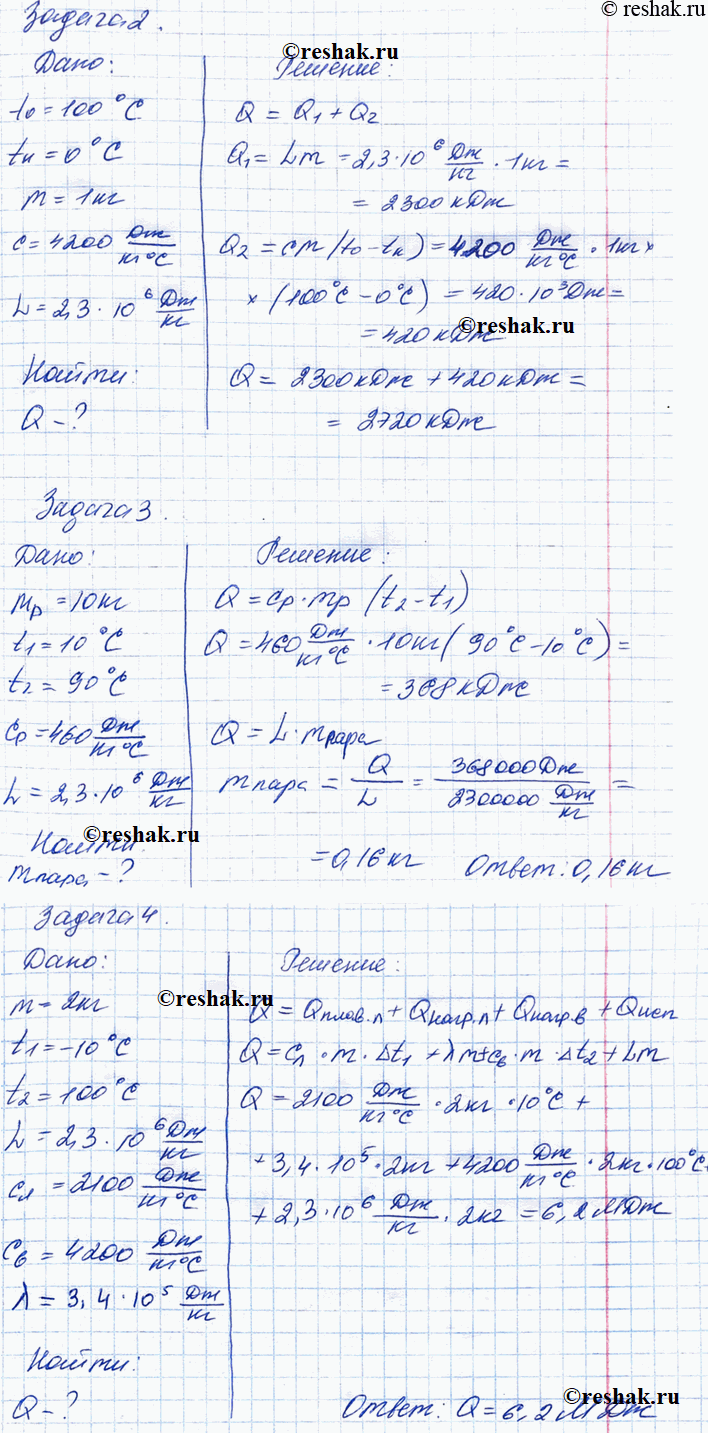 ©reshak.ru
Задача 2.
©reshak.ru
Дано:
t₀ = 100 °C
tк = 0 °C
m = 1 кг
c = 4200 Дж/кг°C
L = 2,3 · 10⁶ Дж/кг
Найти:
Q – ?
Решение:
Q = Q₁ + Q₂
Q₁ = Lm = 2,3 · 10⁶ Дж/кг · 1 кг =
= 2300 кДж
Q₂ = cm (t₀ – tк) = 4200 Дж/кг°C · 1 кг ×
× (100°C – 0°C) = 420 · 10³ Дж =
= 420 кДж
©reshak.ru
Q = 2300 кДж + 420 кДж =
= 2720 кДж
Задача 3.
Дано:
mр = 10 кг
t₁ = 10 °C
t₂ = 90 °C
cр = 460 Дж/кг°C
L = 2,3 · 10⁶ Дж/кг
©reshak.ru
Найти:
mпара – ?
Решение:
Q = cр · mр (t₂ – t₁)
Q = 460 Дж/кг°C · 10 кг (90°C – 10°C) =
= 368 кДж
Q = L · mпара
mпара = Q/L = 368000 Дж / 2300000 Дж/кг =
= 0,16 кг Ответ: 0,16 кг
Задача 4.
Дано:
m = 2 кг
©reshak.ru
t₁ = –10 °C
t₂ = 100 °C
L = 2,3 · 10⁶ Дж/кг
cл = 2100 Дж/кг°C
cв = 4200 Дж/кг°C
λ = 3,4 · 10⁵ Дж/кг
Найти:
Q – ?
Решение:
Q = Qплав.л + Qнагр.л + Qнагр.в + Qисп
Q = cл · m · Δt₁ + λm + cв · m · Δt₂ + Lm
Q = 2100 Дж/кг°C · 2 кг · 10°C +
+ 3,4 · 10⁵ · 2 кг + 4200 Дж/кг°C · 2 кг · 100°C +
+ 2,3 · 10⁶ Дж/кг · 2 кг = 6,2 МДж
©reshak.ru
Ответ: Q = 6,2 МДж